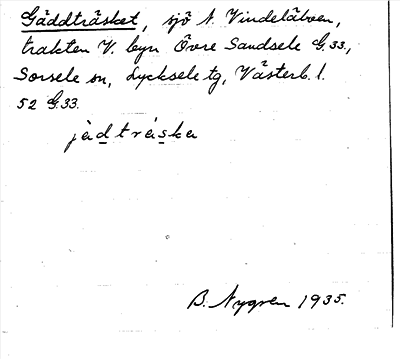 Gäddträsket, sjö N. Vindelälven,
trakten V. byn Övre Sandsele G.33.,
Sorsele sn, Lycksele tg, Västerb. l.
52 G.33.
jàdtráska
B. Nygren 1935.